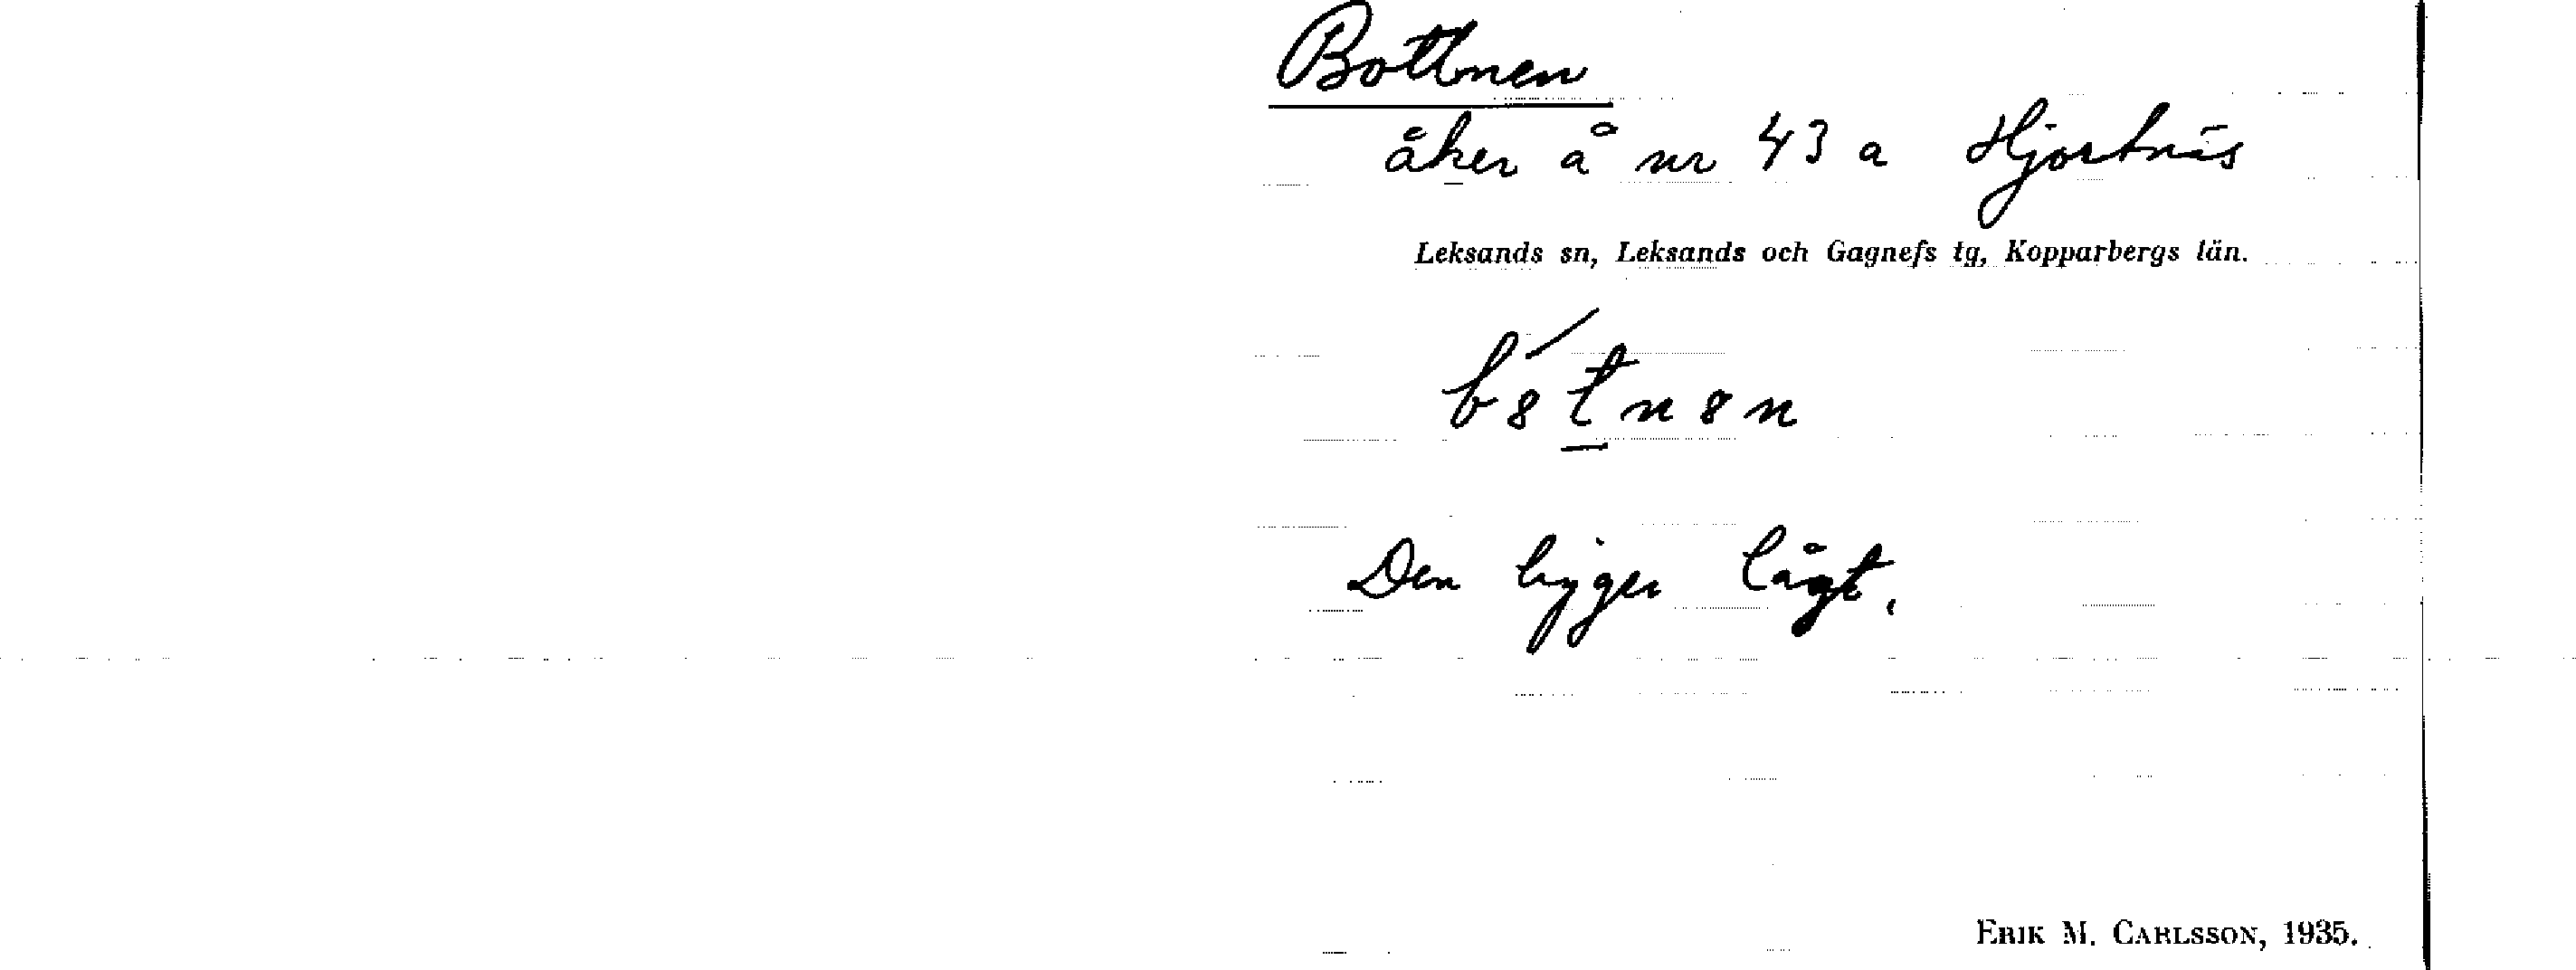 Bottnen
åker å nr 43 a Hjortnäs
Leksands sn, Leksands och Gagnefs tg, Kopparbergs län.
b8́tn8n
Den ligger lågt.
ERIK M. CARLSSON, 1935.